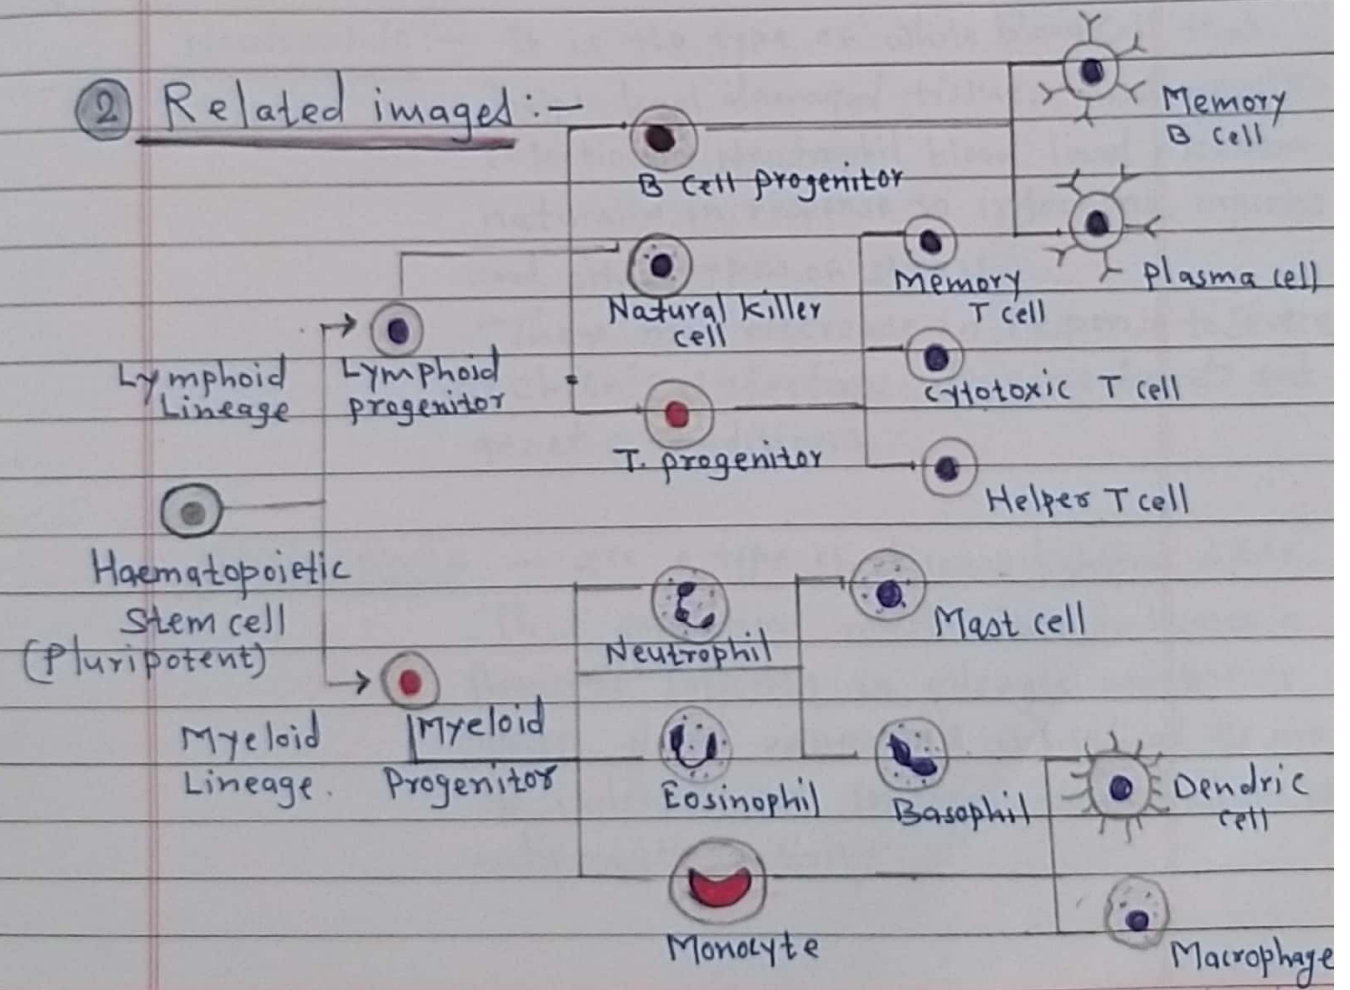 ② Related images :-
Memory
B Cell
B Cell progenitor
Plasma cell
Memory
T cell
Natural killer
cell
Cytotoxic T cell
Lymphoid
Lineage
Lymphoid
progenitor
T. progenitor
Helper T cell
Haematopoietic
Stem cell
(Pluripotent)
Neutrophil
Mast cell
Myeloid
Lineage.
Myeloid
Progenitor
Eosinophil
Basophil
Dendric
cell
Monocyte
Macrophage